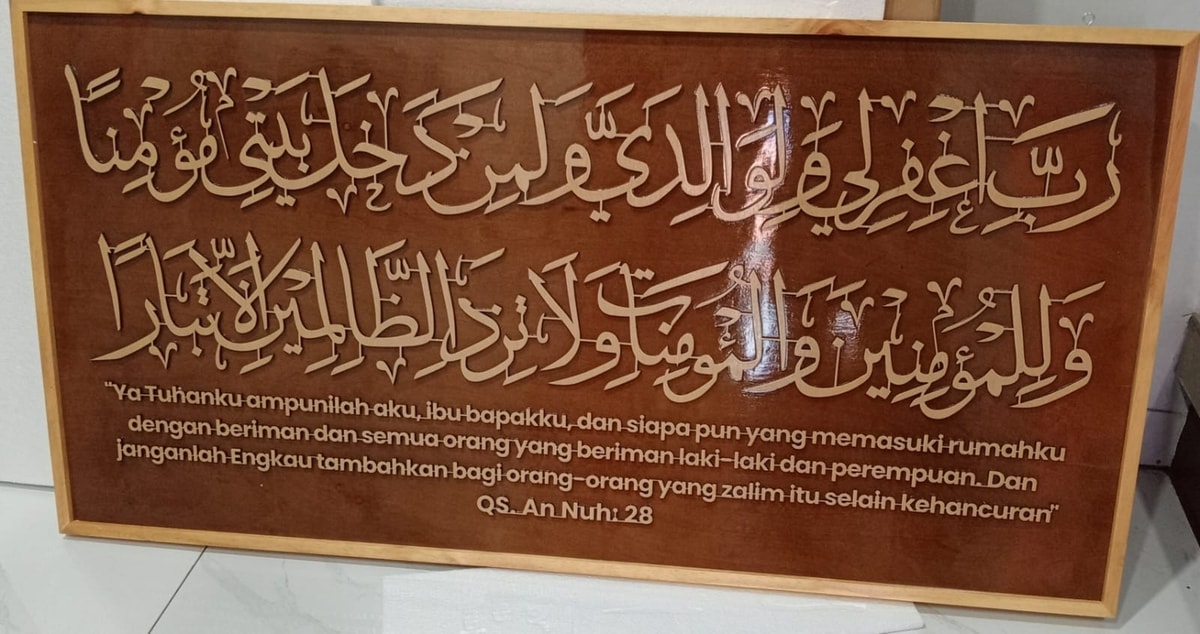 رَبِّ اغْفِرْ لِي وَلِوَالِدَيَّ وَلِمَنْ دَخَلَ بَيْتِيَ مُؤْمِنًا
وَلِلْمُؤْمِنِينَ وَالْمُؤْمِنَاتِ وَلَا تَزِدِ الظَّالِمِينَ إِلَّا تَبَارًا
"Ya Tuhanku ampunilah aku, ibu bapakku, dan siapa pun yang memasuki rumahku
dengan beriman dan semua orang yang beriman laki-laki dan perempuan. Dan
janganlah Engkau tambahkan bagi orang-orang yang zalim itu selain kehancuran"
QS. An Nuh: 28